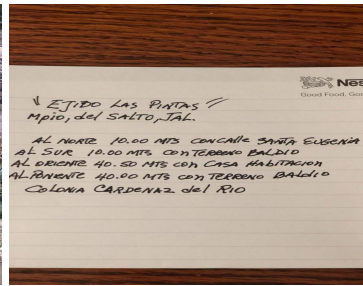 Nes
Good Food, Goo
√ EJIDO LAS PINTAS //
Mpio, del SALTO, JAL.
AL NORTE 10.00 MTS CON CAlle SANTA EUGENIA
AL SUR 10.00 MTS CON TERRENO BALDIO
AL ORIENTE 40.50 MTS CON CASA HABITACION
AL PONIENTE 40.00 MTS CON TERRENO BALDIO
COLONIA CARDENAZ del RIO